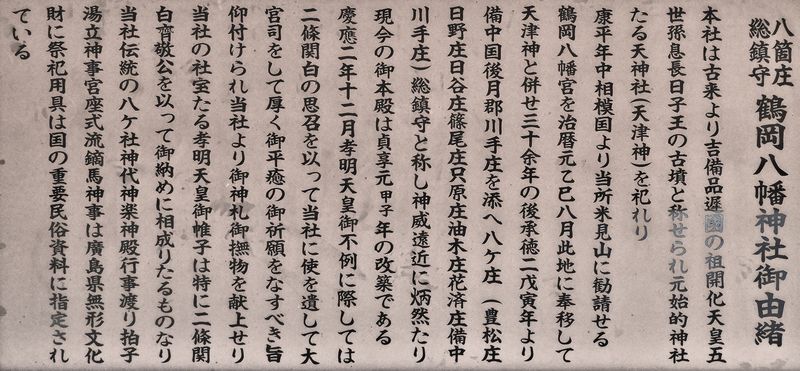 八箇庄
総鎮守
鶴岡八幡神社御由緒
本社は古来より吉備品遅國の祖開化天皇五
世孫息長日子王の古墳と称せられ元始的神社
たる天神社(天津神)を祀れり
康平年中相模国より当所米見山に勧請せる
鶴岡八幡宮を治暦元乙巳八月此地に奉移して
天津神と併せ三十余年の後承徳二戊寅年より
備中国後月郡川手庄を添へ八ケ庄(豊松庄
日野庄日谷庄篠尾庄只原庄油木庄花済庄備中
川手庄)総鎮守と称し神威遠近に炳然たり
現今の御本殿は貞享元甲子年の改築である
慶應二年十二月孝明天皇御不例に際しては
二條関白の思召を以って当社に使を遣して大
宮司をして厚く御平癒の御祈願をなすべき旨
仰付けられ当社より御神札御撫物を献上せり
当社の社宝たる孝明天皇御帷子は特に二條関
白齊敬公を以って御納めに相成りたるものなり
当社伝統の八ケ社神代神楽神殿行事渡り拍子
湯立神事宮座式流鏑馬神事は廣島県無形文化
財に祭祀用具は国の重要民俗資料に指定され
ている